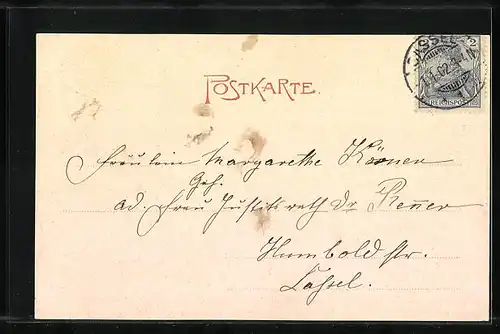 POSTKARTE.
CASSEL
2
REICHSPOST
Fräulein Margarethe Körner
Geh.
ad. Frau Justitsrath Dr Renner
Humboldstr.
Cassel.